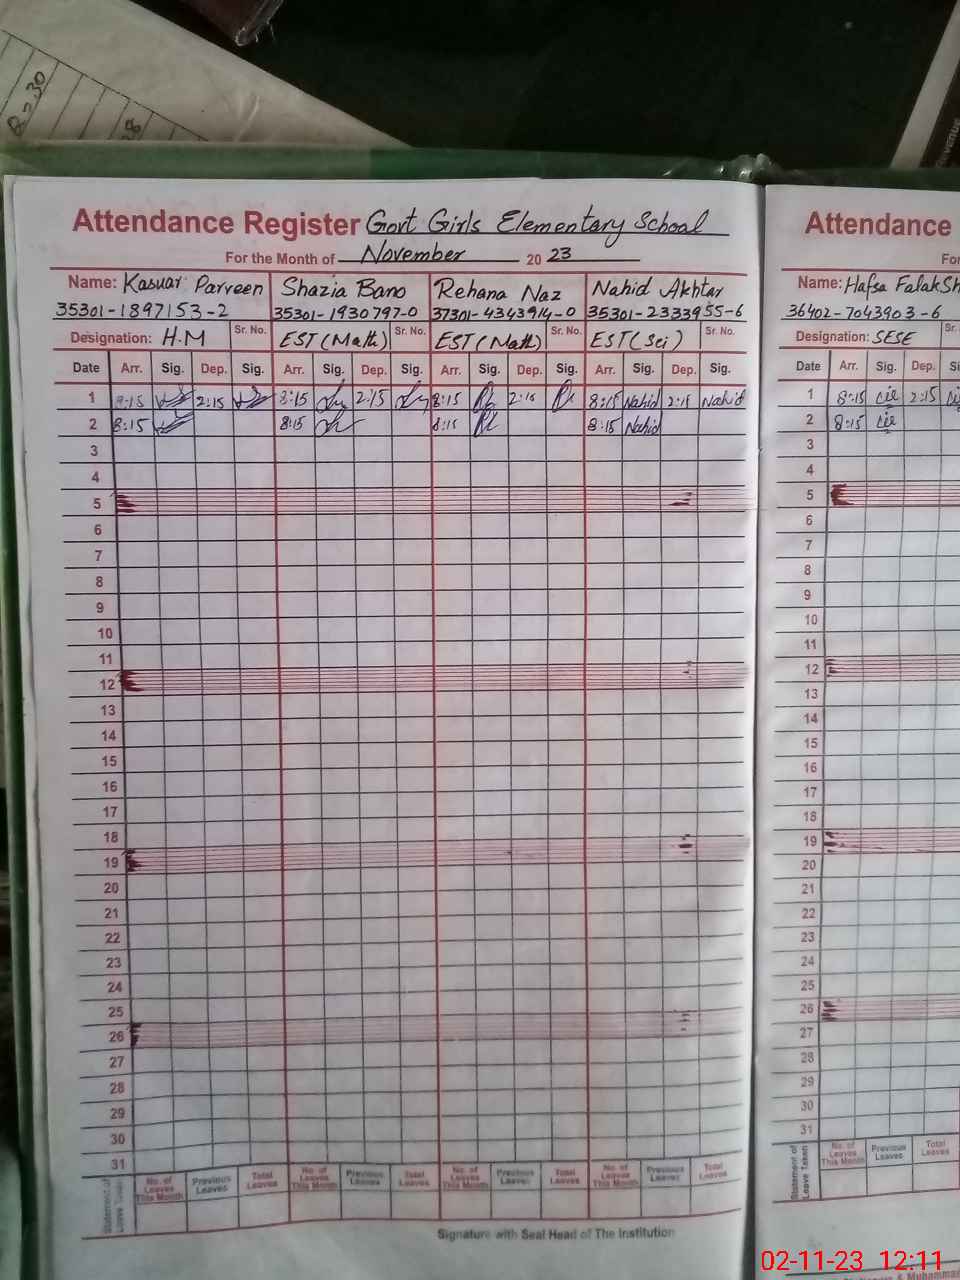 R = 30
Attendance Register Govt Girls Elementary School
For the Month of November 2023
Name: Kasuar Parveen Shazia Bano Rehana Naz Nahid Akhtar
35301-1897153-2 35301-1930797-0 37301-4343914-0 35301-2333955-6
Designation: H.M Sr. No. EST (Math) Sr. No. EST (Math) Sr. No. EST (Sci) Sr. No.
Date Arr. Sig. Dep. Sig. Arr. Sig. Dep. Sig. Arr. Sig. Dep. Sig. Arr. Sig. Dep. Sig.
1 8:15 2:15 8:15 2:15 8:15 2:15 8:15 Nahid 2:15 Nahid
2 8:15 8:15 8:15 8:15 Nahid
3
4
5
6
7
8
9
10
11
12
13
14
15
16
17
18
19
20
21
22
23
24
25
26
27
28
29
30
31
Statement of Leave Taken No. of Leaves This Month Previous Leaves Total Leaves No. of Leaves This Month Previous Leaves Total Leaves No. of Leaves This Month Previous Leaves Total Leaves No. of Leaves This Month Previous Leaves Total Leaves
Signature with Seal Head of The Institution
Attendance
For
Name: Hafsa Falak Sh
36402-7043903-6
Designation: SESE Sr.
Date Arr. Sig. Dep. Si
1 8:15 2:15
2 8:15
3
4
5
6
7
8
9
10
11
12
13
14
15
16
17
18
19
20
21
22
23
24
25
26
27
28
29
30
31
Statement of Leave Taken No. of Leaves This Month Previous Leaves Total Leaves
& Muhammad
02-11-23 12:11